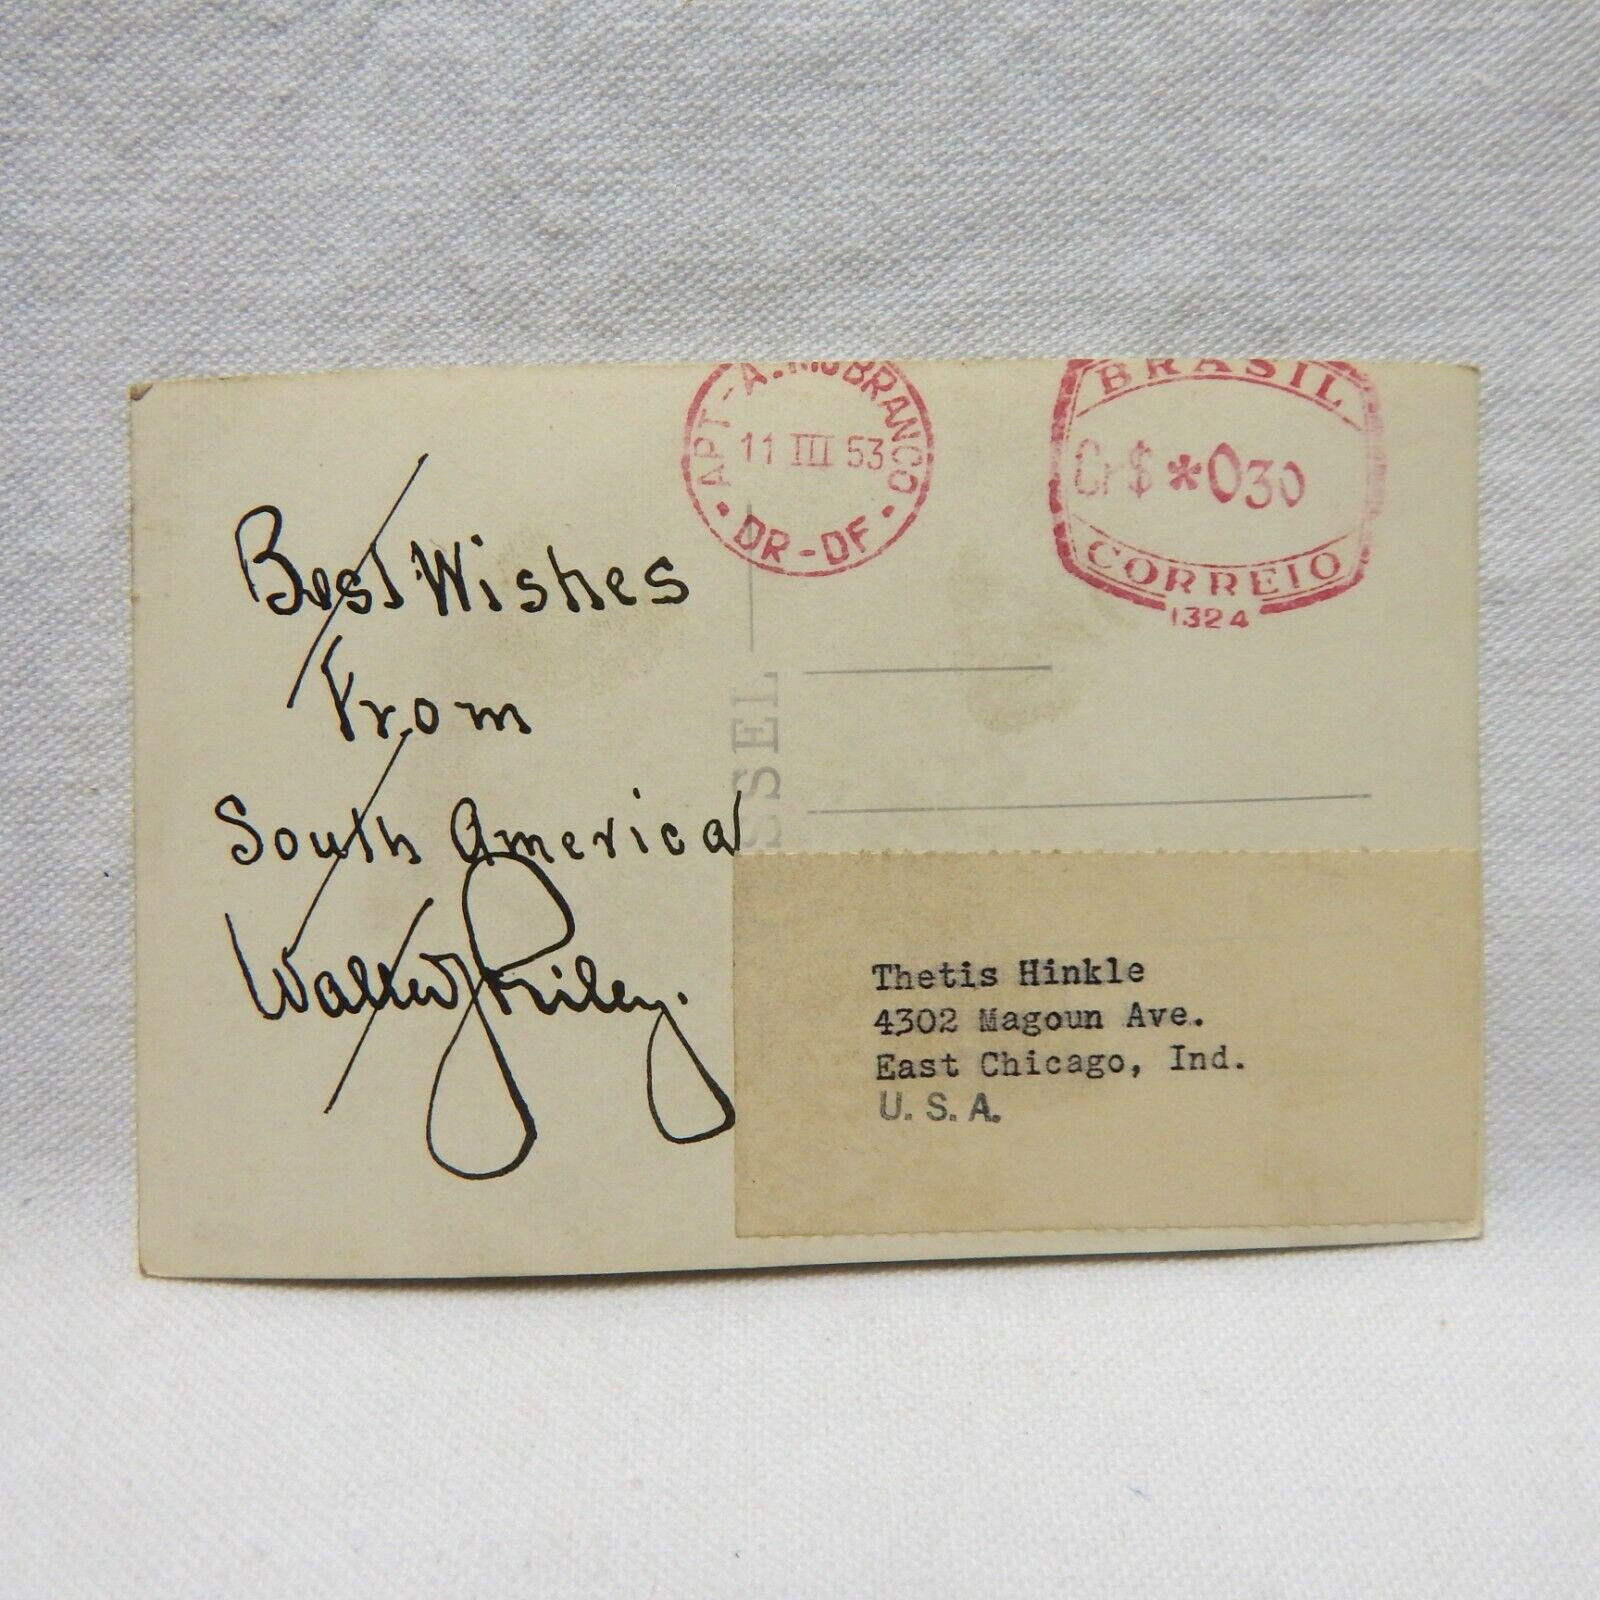 Best Wishes
From
South America
Walter J Riley.
APT-A.RIOBRANCO
11 III 53
DR-DF
BRASIL
Cr$ *030
CORREIO
1324
SSEL
Thetis Hinkle
4302 Magoun Ave.
East Chicago, Ind.
U.S.A.